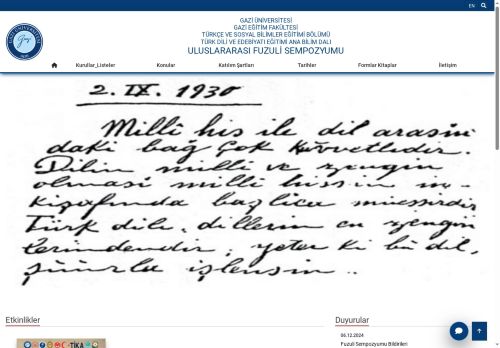 EN
GAZİ ÜNİVERSİTESİ
GAZİ EĞİTİM FAKÜLTESİ
TÜRKÇE VE SOSYAL BİLİMLER EĞİTİMİ BÖLÜMÜ
TÜRK DİLİ VE EDEBİYATI EĞİTİMİ ANA BİLİM DALI
ULUSLARARASI FUZULİ SEMPOZYUMU
Kurullar_Listeler Konular Katılım Şartları Tarihler Formlar Kitaplar İletişim
2. IX. 1930
Millî his ile dil arasın
daki bağ çok kuvvetlidir.
Dilin millî ve zengin
olması millî hissin in-
kişafında başlıca müessirdir.
Türk dili, dillerin en zengin
lerindendir; yeter ki bu dil,
şuurla işlensin..
Etkinlikler
TİKA
Duyurular
06.12.2024
Fuzuli Sempozyumu Bildirileri